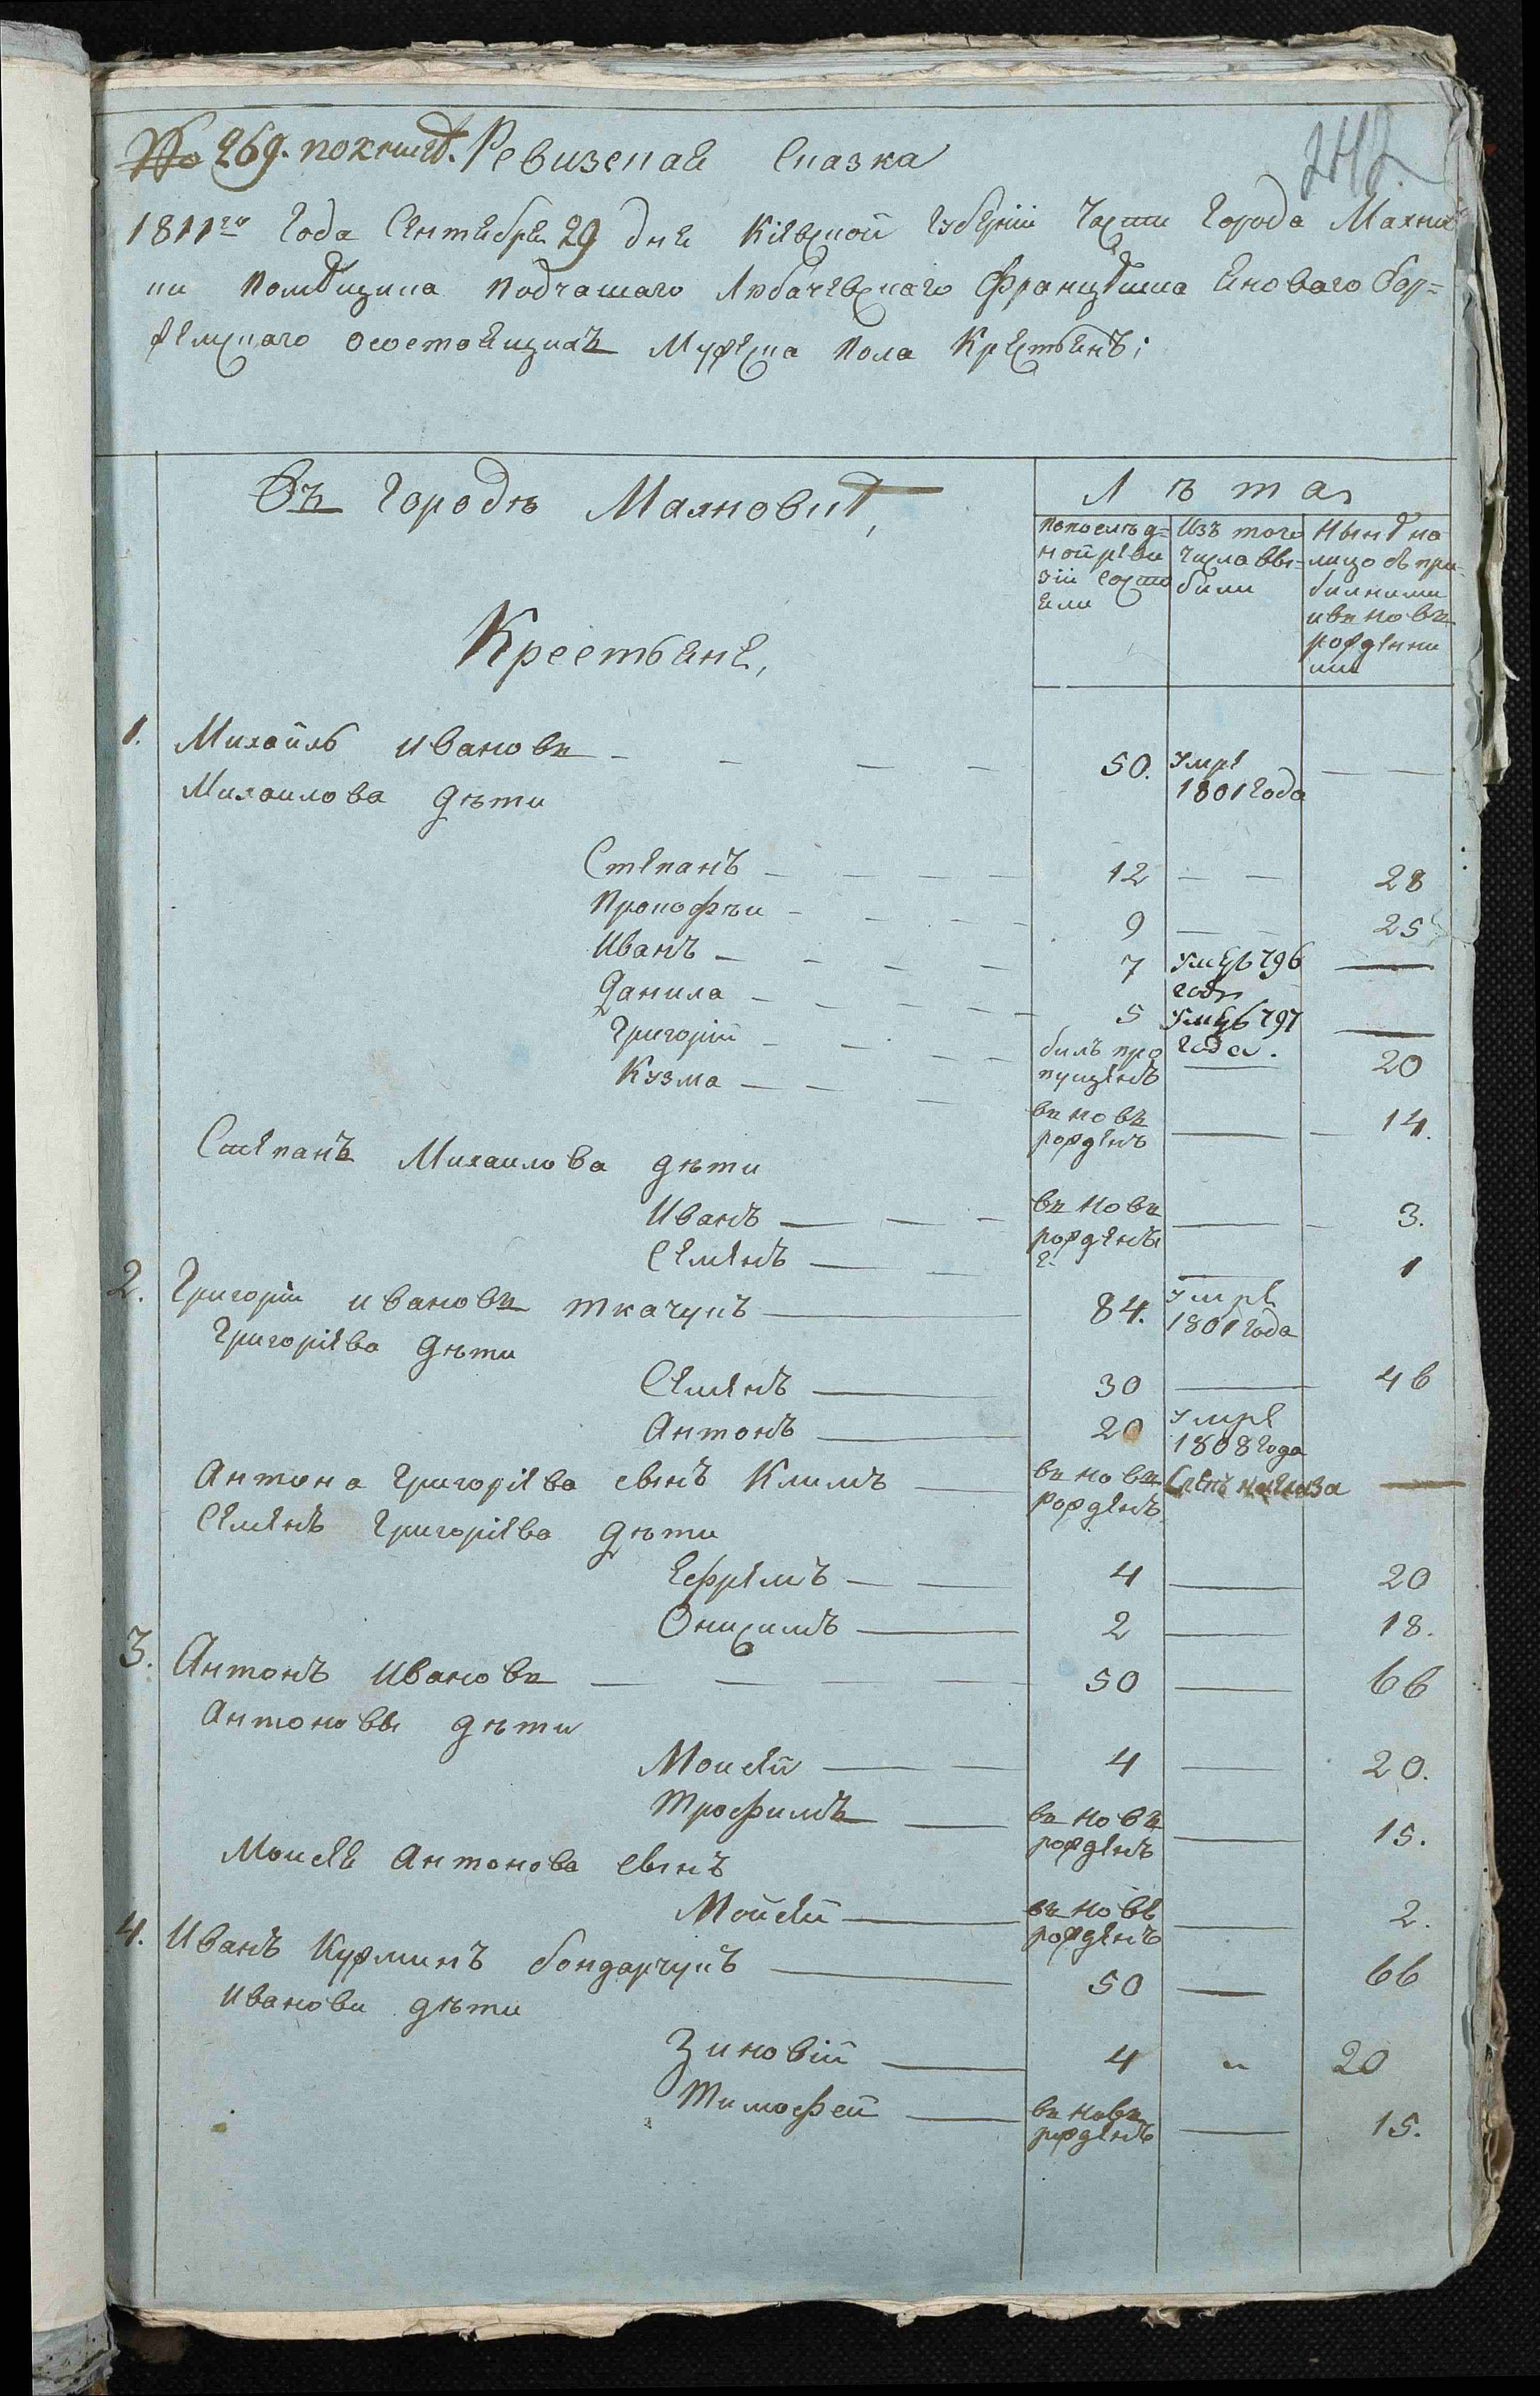 № 269. по книгѣ. Ревизская Сказка
242
1811го Года Сентября 29 дня Кіевской Губерніи Части Города Махнив
ки помѣщика подчашаго Любачевскаго Францѣшка
осостоящихъ Мужеска пола Крестьянъ;
Въ Городѣ Махновкѣ,
Крестьяне,
Лѣта
попослѣд=
ней реви
зіи состо
яли
Изъ того
числа вы=
были
Нынѣ на
лицо съ при
былими
ивновь
рожденни
ми
1. Михайлъ Ивановъ — — — — 50. Умре 1801 Года — —
Михаилова дѣти
Степанъ — — — — 12 — — 28
Прокофѣи — — — — 9 — — 25
Иванъ — — — — 7 796 годѣ —
Данила — — — — 5 797 года. —
Григорій — — — — билъ про пущенъ — 20
Кузма — — — въ новъ рожденъ — — 14.
Степанъ Михаилова дѣти
Иванъ — — — въ новъ рождены — — 3.
Семенъ — — 2. — 1
2. Григорій Ивановъ Ткачукъ — 84. Умре 1801 Года
Григоріева дѣти
Семенъ — 30 — 46
Антонъ — 20 Умре 1808 Года
Антона Григоріева сынъ Климъ — въ новъ рожденъ —
Семенъ Григоріева дѣти
Ефремъ — — 4 — 20
Онисимъ — 2 — 18.
3. Антонъ Ивановъ — — — — 50 — 66
Антоновы дѣти
Моисей — — 4 — 20.
Трофимъ — въ новъ рожденъ — 15.
Моисея Антонова сынъ
Мойсей — въ новъ рожденъ — 2.
4. Иванъ Кузминъ Бондарчукъ — 50 — 66
Иванови дѣти
Зиновій — 4 „ 20
Тимофей — въ новъ рожденъ — 15.